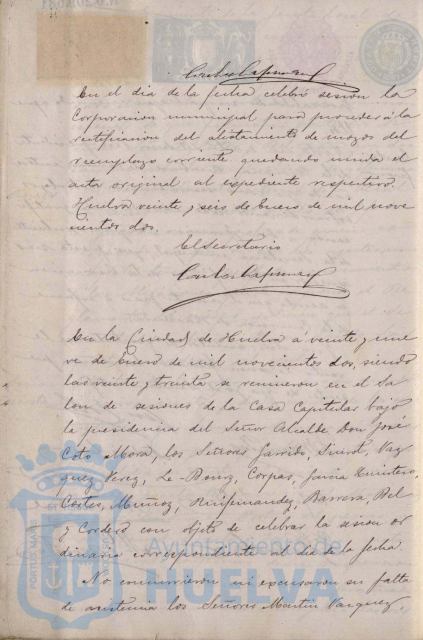 En el dia de la fecha celebró sesion la
Corporacion municipal para proceder á la
rectificacion del alistamiento de mozos del
reemplazo corriente quedando unida el
acta original al expediente respectivo.
Huelva veinte y seis de Enero de mil nove
cientos dos.
El Secretario
En la Ciudad de Huelva á veinte y nue
ve de Enero de mil novecientos dos, siendo
las veinte y treinta se reunieron en el Sa
lon de sesiones de la Casa Capitular bajo
la presidencia del Señor Alcalde Don José
Coto Mora, los Señores Garrido, Vaz
quez Perez, Le-Bourg, Corpas, Garcia Quintero,
Cortes, Muñoz, Ruifernandez, Barrera, Bel
y Cordero con objeto de celebrar la sesion or
dinaria correspondiente al dia de la fecha.
No concurrieron ni excusaron su falta
de asistencia los Señores Martin Vazquez,
Ayuntamiento de
HUELVA